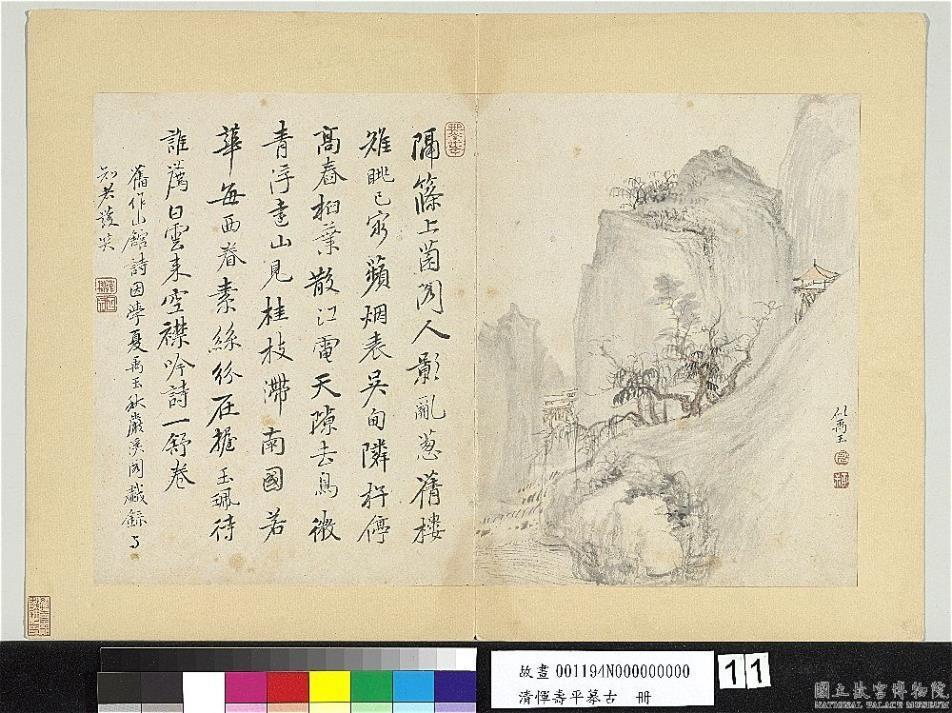 隔篠上茵閣人影亂蔥蒨樓
雉眺已窮蘋烟表吳甸隣杵停
高舂桕葉散江電天隙去鳥微
青浮遠山見桂枝滯南國若
華每西眷素絲紛在握玉珮待
誰薦白雲來空襟吟詩一舒卷
舊作山館詩因學夏禹玉秋巖溪閣輒錄
知者發笑
仿禹玉
故畫 001194N000000000
清惲壽平摹古 冊
11
國立故宮博物院
NATIONAL PALACE MUSEUM